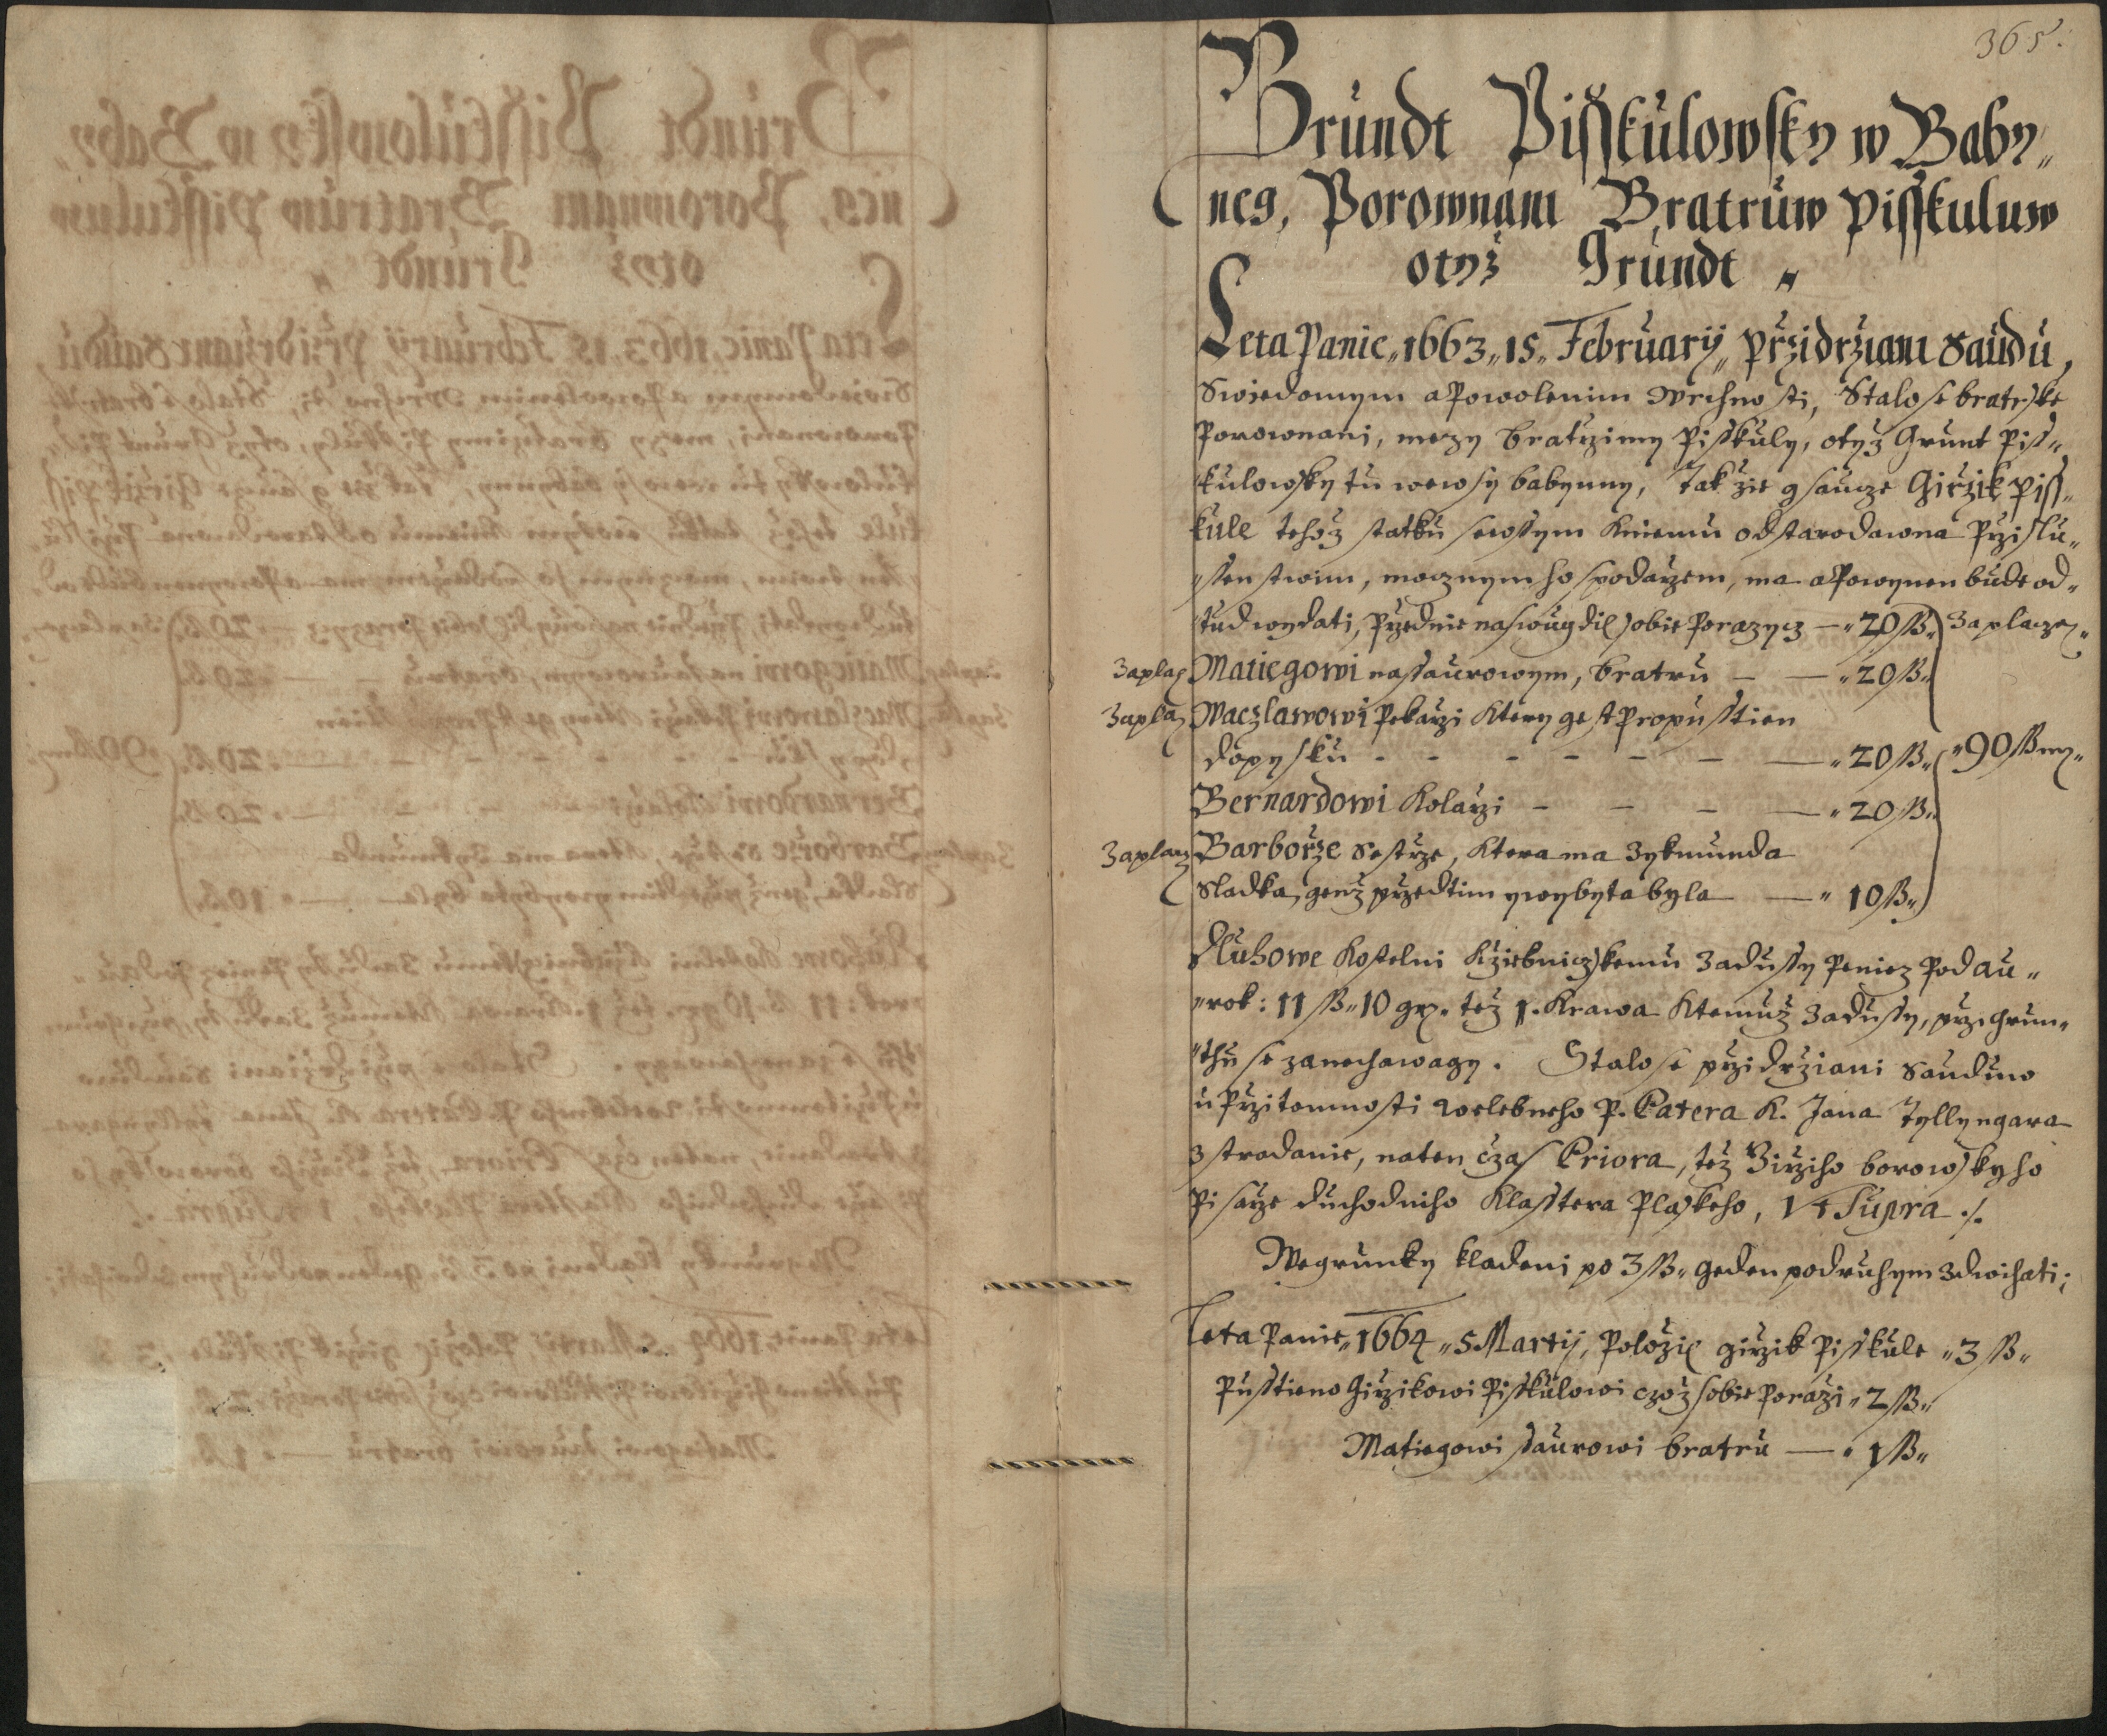 365.
Grundt Pisskulowsky w Baby„
neg, Porownani Bratruw Pisskuluw
otyž Grundt „
Leta Panie „1663„ 15„ February„ przidrziani Saudu,
Swiedomym a Powolenim Wrchnosti, Stalo se bratrske
Porownani, mezy bratrzimy Pisskuly, otyž Grunt Piss„
kulowsky tu wewsy babynny, Tak žie gsaucze Girzik Piss„
kule tehož statku sewssym kniemu odstarodawna Przislu„
„ssenstwim, mocznym hospodarzem, ma a Powynen bude od„
tud wydati, Przednie naswug dil sobie Porazycz — „20 ß„ Zaplacze„
Zaplac Matiegowi nassaurowym, bratru — — „20 ß„
Zaplac Waczlawowi Pekarzi ktery gest Propusstien
dopysku - - - - - — — „20 ß„ „90 ß my„
Bernardowi Kolarzi — — — — „20 ß„
Zaplacz Barborze Sestrze, ktera ma Zykmunda
Sladka, genž przedtim ywybyta byla — „ 10 ß„
Dluhowe Kostelni Krziebniczskemu Zadussy Peniez Podau„
„rok: 11 ß„ 10 gr. tež 1. Krawa ktemuž Zadussy, przi Grun„
„thu se zanechawagy. Stalo se przidrziani Sauduw
u Przitomnosti welebneho P. Patera K. Jana Tyllyngara
z stradanie, naten čzas Priora, tež Girziho borowskyho
Pisarze duchodniho Klasstera Plaskeho, Vt Supra ./.
Wegrunky kladeni po 3 ß„ geden podruhym zdwihati;
Leta Panie„ 1664 „5 Martij, Položil girzik Pisskule „3 ß„
Pusstieno Girzikowi Pisskulowi czož sobie Porazi „2 ß„
Matiegowi ssaurowi bratru — „ 1 ß„